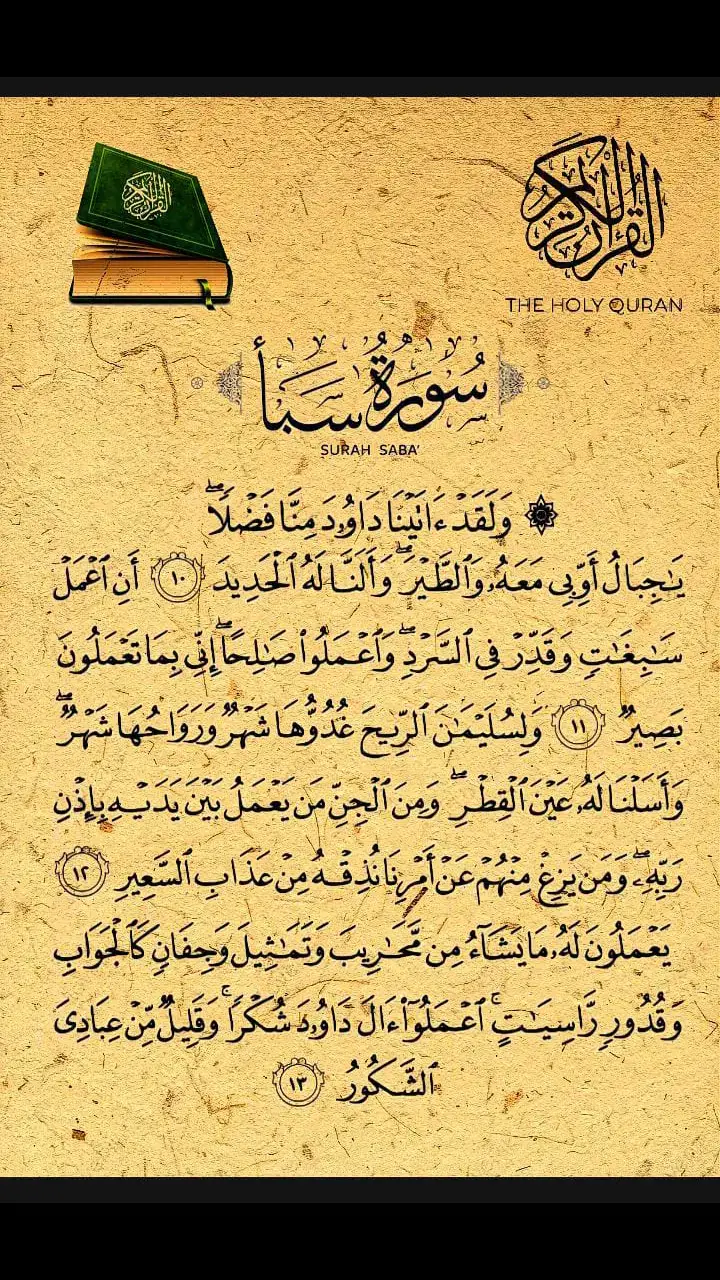 القرآن الكريم
القرآن الكريم
THE HOLY QURAN
سُورَةُ سَبَأ
SURAH SABA'
۞ وَلَقَدْ ءَاتَيْنَا دَاوُۥدَ مِنَّا فَضْلًاۖ
يَٰجِبَالُ أَوِّبِى مَعَهُۥ وَٱلطَّيْرَۖ وَأَلَنَّا لَهُ ٱلْحَدِيدَ ١٠ أَنِ ٱعْمَلْ
سَٰبِغَٰتٍ وَقَدِّرْ فِى ٱلسَّرْدِۖ وَٱعْمَلُوا۟ صَٰلِحًاۖ إِنِّى بِمَا تَعْمَلُونَ
بَصِيرٌ ١١ وَلِسُلَيْمَٰنَ ٱلرِّيحَ غُدُوُّهَا شَهْرٌ وَرَوَاحُهَا شَهْرٌۖ
وَأَسَلْنَا لَهُۥ عَيْنَ ٱلْقِطْرِۖ وَمِنَ ٱلْجِنِّ مَن يَعْمَلُ بَيْنَ يَدَيْهِ بِإِذْنِ
رَبِّهِۦۖ وَمَن يَزِغْ مِنْهُمْ عَنْ أَمْرِنَا نُذِقْهُ مِنْ عَذَابِ ٱلسَّعِيرِ ١٢
يَعْمَلُونَ لَهُۥ مَا يَشَآءُ مِن مَّحَٰرِيبَ وَتَمَٰثِيلَ وَجِفَانٍ كَٱلْجَوَابِ
وَقُدُورٍ رَّاسِيَٰتٍۚ ٱعْمَلُوٓا۟ ءَالَ دَاوُۥدَ شُكْرًاۚ وَقَلِيلٌ مِّنْ عِبَادِىَ
ٱلشَّكُورُ ١٣